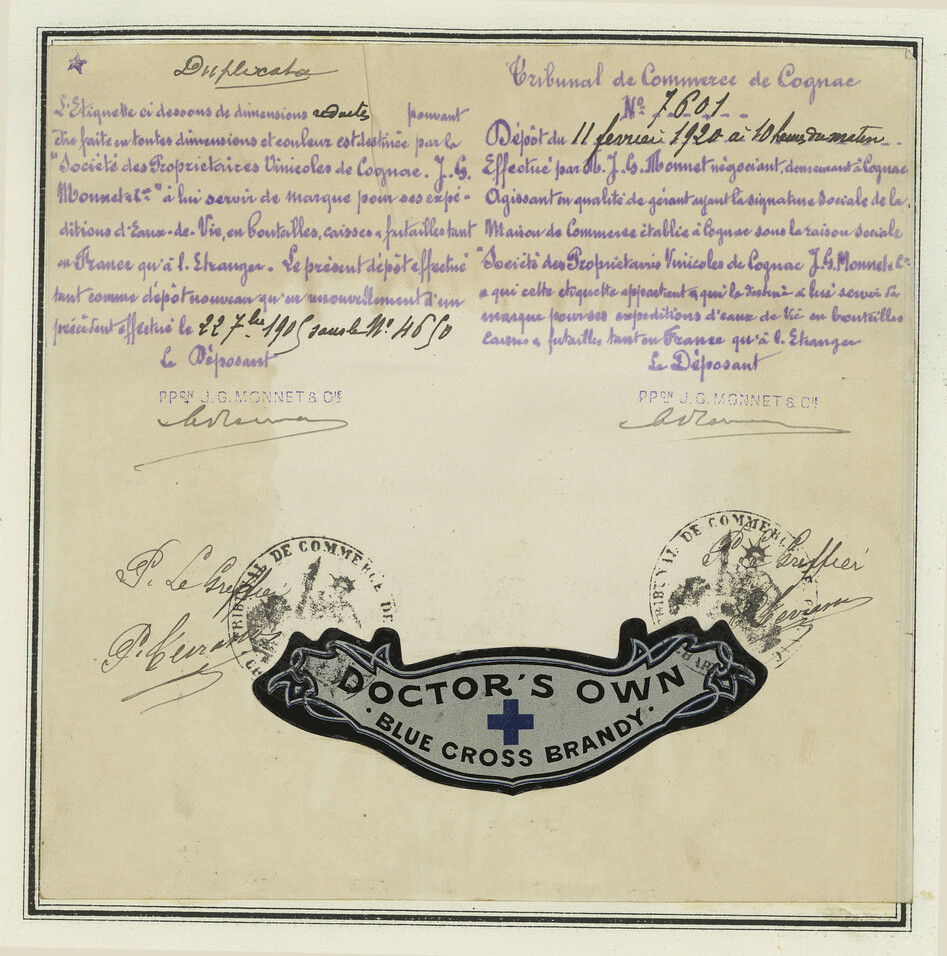 Duplicata
L'Etiquette ci dessous de dimensions reduites pouvant
être faite en toutes dimensions et couleur est destinée par la
"Société des Propriétaires Vinicoles de Cognac. J. G.
Monnet & Cie" à lui servir de marque pour ses expé-
ditions d'Eaux-de-Vie, en bouteilles, caisses & futailles tant
en France qu'à l'Etranger. Le présent dépôt effectué
tant comme dépôt nouveau qu'en renouvellement d'un
précédent effectué le 22 7bre 1905 sous le No. 4650
Le Déposant
PPON J. G. MONNET & CIE
Tribunal de Commerce de Cognac
No. 7601
Dépôt du 11 fevrier 1920 à 10 heures du matin
Effectué par M. J. G. Monnet négociant, demeurant à Cognac
Agissant en qualité de gérant ayant la signature sociale de la
Maison de Commerce établie à Cognac sous la raison sociale
"Société des Propriétaires Vinicoles de Cognac J. G. Monnet & Cie
a qui cette etiquette appartient & qui la destine à lui servir de
marque pour ses expeditions d'eaux de Vie en bouteilles
caisses & futailles tant en France qu'à l'Etranger
Le Déposant
PPON J. G. MONNET & CIE
P. Le Greffier
TRIBUNAL DE COMMERCE DE
P. Le Greffier
TRIBUNAL DE COMMERCE
DOCTOR'S OWN
·BLUE CROSS BRANDY·